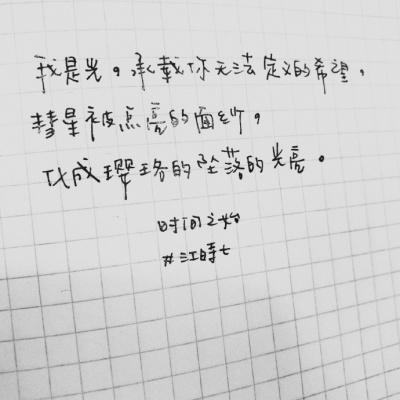 我是光。承载你无法定义的希望，
彗星被点亮的面纱，
化成璎珞的坠落的光亮。
时间之始
#江時七